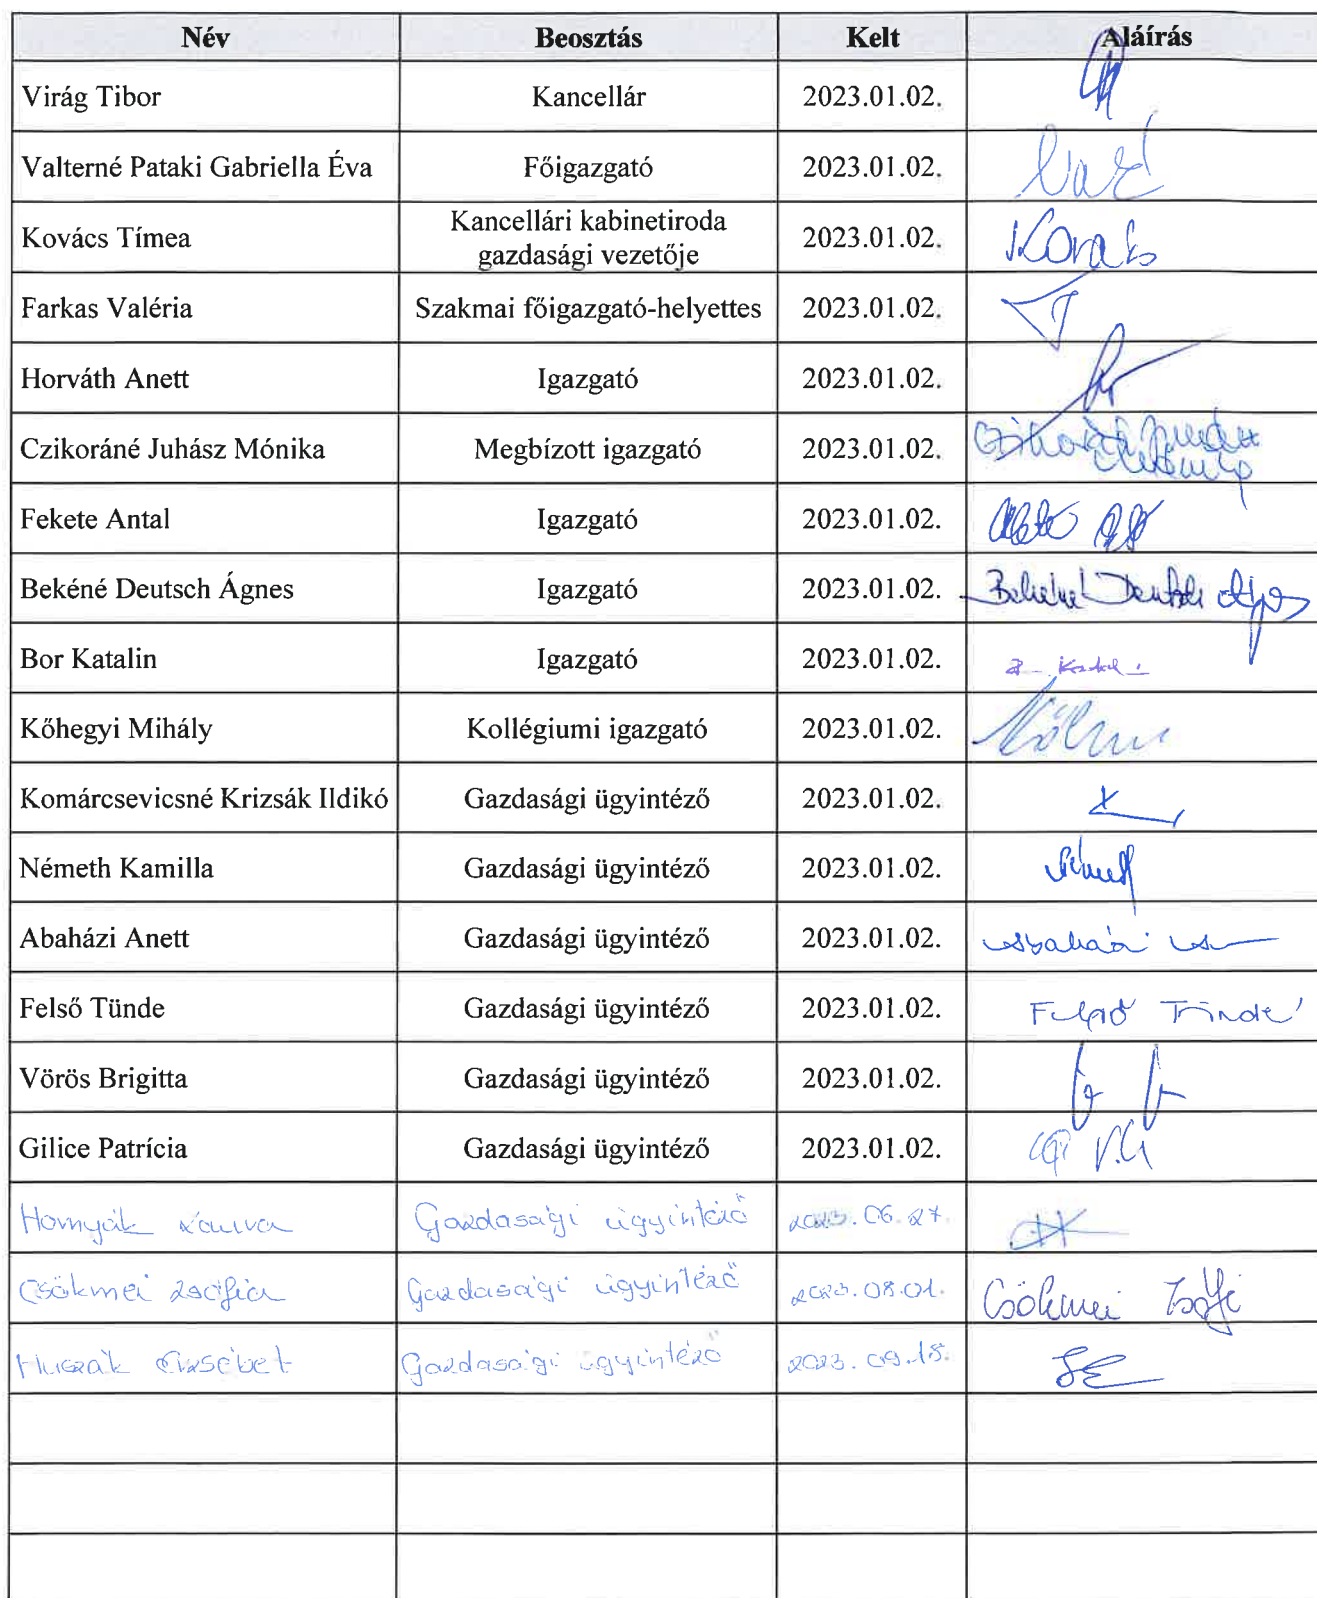 Név Beosztás Kelt Aláírás
Virág Tibor Kancellár 2023.01.02.
Valterné Pataki Gabriella Éva Főigazgató 2023.01.02.
Kovács Tímea Kancellári kabinetiroda gazdasági vezetője 2023.01.02. Kovács
Farkas Valéria Szakmai főigazgató-helyettes 2023.01.02.
Horváth Anett Igazgató 2023.01.02.
Czikoráné Juhász Mónika Megbízott igazgató 2023.01.02.
Fekete Antal Igazgató 2023.01.02.
Bekéné Deutsch Ágnes Igazgató 2023.01.02. Bekéné Deutsch Ágnes
Bor Katalin Igazgató 2023.01.02.
Kőhegyi Mihály Kollégiumi igazgató 2023.01.02.
Komárcsevicsné Krizsák Ildikó Gazdasági ügyintéző 2023.01.02.
Németh Kamilla Gazdasági ügyintéző 2023.01.02.
Abaházi Anett Gazdasági ügyintéző 2023.01.02.
Felső Tünde Gazdasági ügyintéző 2023.01.02. Felső Tünde
Vörös Brigitta Gazdasági ügyintéző 2023.01.02.
Gilice Patrícia Gazdasági ügyintéző 2023.01.02.
Hornyák Gazdasági ügyintéző 2023.06.27.
Csökmei Zsófia Gazdasági ügyintéző 2023.08.01. Csökmei Zsófi
Huszák Erzsébet Gazdasági ügyintéző 2023.09.18.